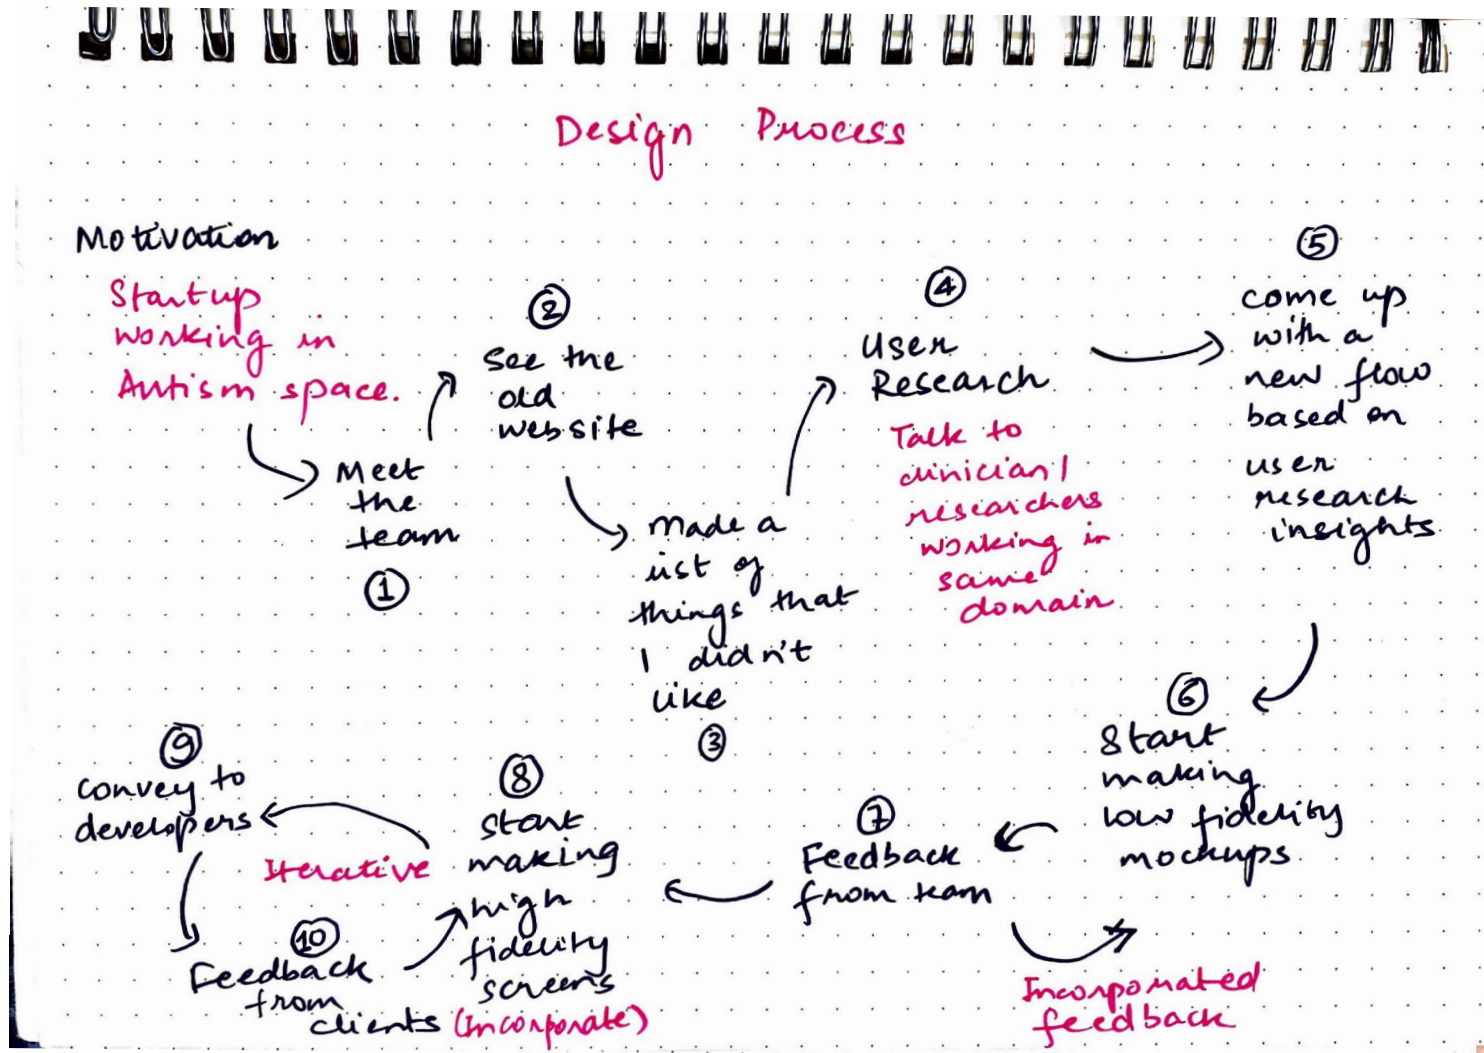 Design Process
Motivation
Startup
working in
Autism space.
Meet
the
team
1
2
See the
old
website
made a
list of
things that
I didn't
like
3
4
User
Research
Talk to
clinician/
researchers
working in
same
domain
5
come up
with a
new flow
based on
user
research
insights
6
Start
making
low fidelity
mockups
7
Feedback
from team
Incorporated
feedback
8
Start
making
high
fidelity
screens
(Incorporate)
Iterative
9
convey to
developers
10
Feedback
from
clients